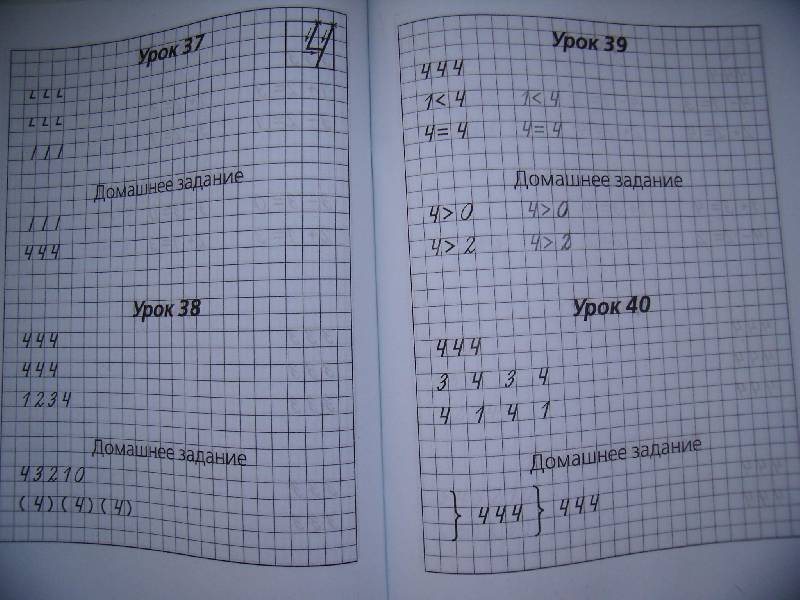 Урок 37
4
ㄥ ㄥ ㄥ
ㄥ ㄥ ㄥ
/ / /
Домашнее задание
/ / /
4 4 4
Урок 38
4 4 4
4 4 4
1 2 3 4
Домашнее задание
4 3 2 1 0
( 4 ) ( 4 ) ( 4 )
Урок 39
4 4 4
1 < 4 1 < 4
4 = 4 4 = 4
Домашнее задание
4 > 0 4 > 0
4 > 2 4 > 2
Урок 40
4 4 4
3 4 3 4
4 1 4 1
Домашнее задание
} 4 4 4 } 4 4 4